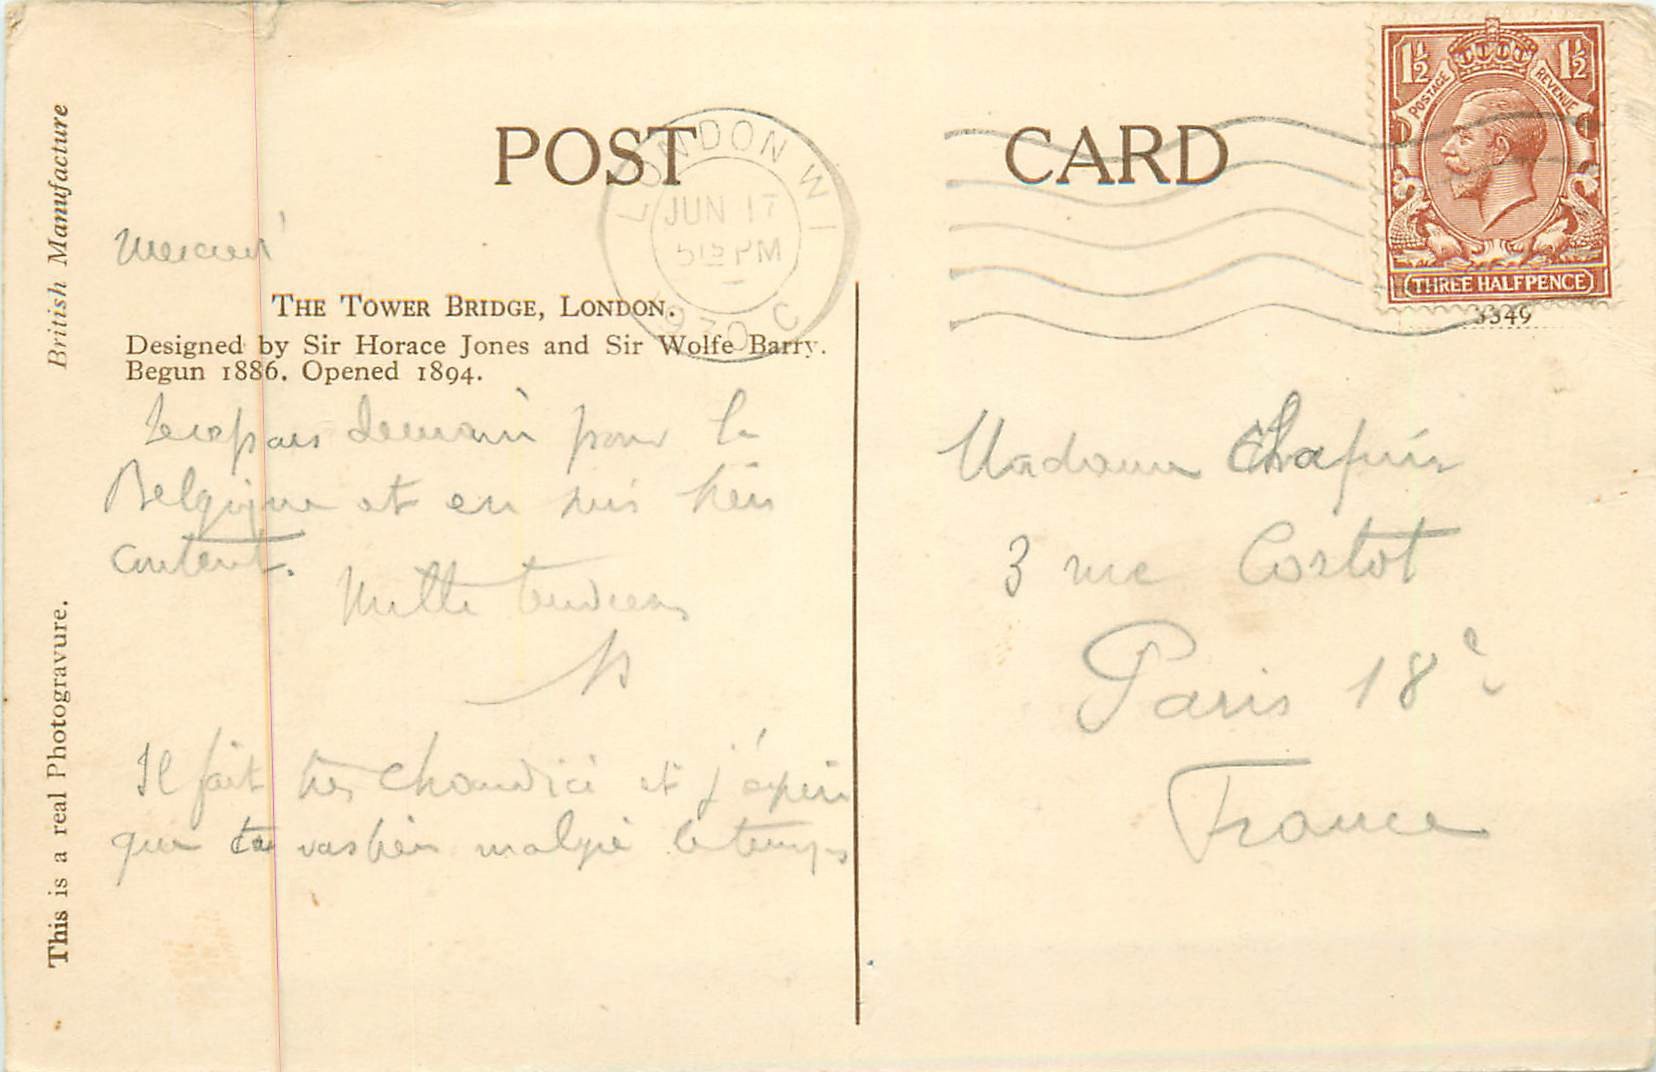 POST CARD
British Manufacture
This is a real Photogravure.
LONDON W1
JUN 17
5 15 PM
1930
C
1½ 1½
POSTAGE REVENUE
THREE HALFPENCE
3349
THE TOWER BRIDGE, LONDON.
Designed by Sir Horace Jones and Sir Wolfe Barry.
Begun 1886. Opened 1894.
demain pour la
Belgique et en suis bien
content.
Mille tendresses
Il fait très chaud ici et j'espère
que tu vas bien malgré le temps
Madame
3 rue
Paris 18e
France